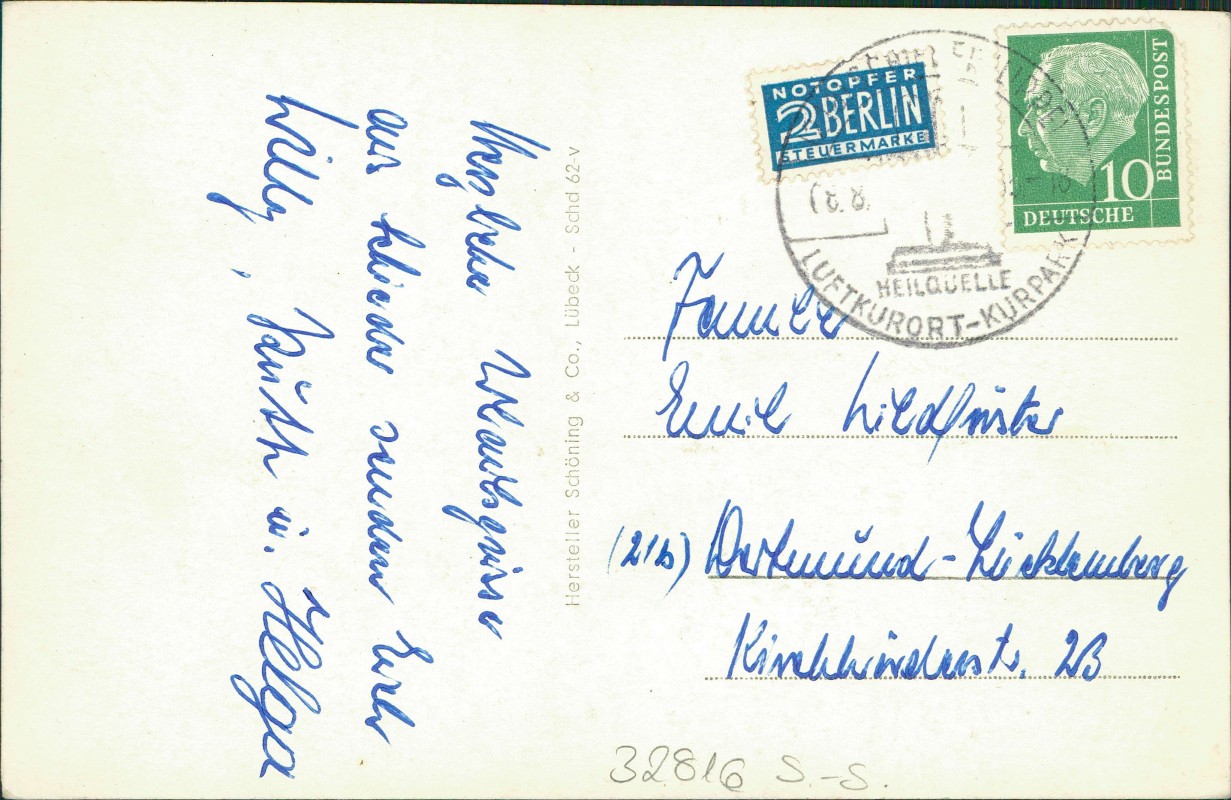 Herzliche Urlaubsgrüsse
aus Schieder senden Euch
Willy, Ruth u. Helga
Hersteller Schöning & Co., Lübeck - Schd 62-v
NOTOPFER
2 BERLIN
STEUERMARKE
DEUTSCHE
BUNDESPOST
10
HEILQUELLE
LUFTKURORT-KURPARK
Familie
Emil
(21b) Dortmund-Lücklemberg
Kirchhörderstr. 23
32816 S.-S.